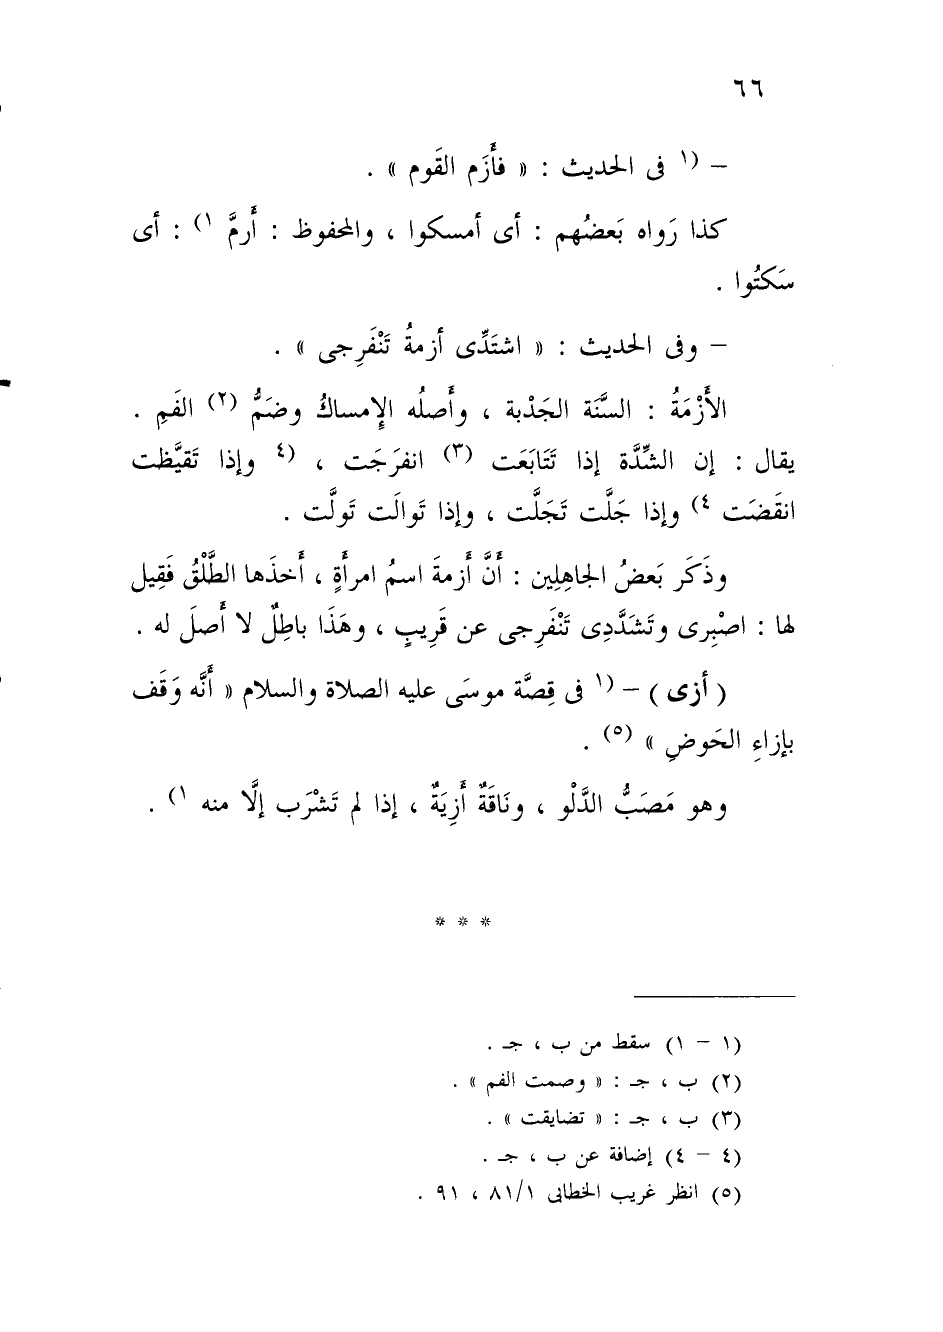 ٦٦
– (١ فى الحديث : « فأَزَم القَوم » .
كذا رَواه بَعضُهم : أى أمسكوا ، والمحفوظ : أَرمَّ ١) : أى
سَكتُوا .
– وفى الحديث : « اشتَدِّى أزمةُ تَنْفَرِجى » .
الأَزْمَةُ : السَّنَة الجَدْبة ، وأَصلُه الإِمساكُ وضَمُّ (٢) الفَمِ .
يقال : إن الشِّدَّة إذا تَتَابَعَت (٣) انفرَجَت ، (٤ وإذا تَقيَّظت
انقَضَت ٤) وإذا جَلَّت تَجَلَّت ، وإذا تَوالَت تَولَّت .
وذَكَر بَعضُ الجاهِلِين : أَنَّ أَزمةَ اسمُ امرأَةٍ ، أَخذَها الطَّلْقُ فَقِيل
لها : اصْبِرى وتَشَدَّدِى تَنْفَرِجى عن قَرِيبٍ ، وهَذَا باطِلٌ لا أَصلَ له .
( أزى ) – (١ فى قِصَّة موسَى عليه الصلاة والسلام « أَنَّه وَقَف
بإِزاءِ الحَوضِ » (٥) .
وهو مَصَبُّ الدَّلْو ، ونَاقَةٌ أَزِيَةٌ ، إذا لم تَشْرَب إلَّا منه ١) .
* * *
(١ – ١) سقط من ب ، جـ .
(٢) ب ، جـ : « وصمت الفم » .
(٣) ب ، جـ : « تضايقت » .
(٤ – ٤) إضافة عن ب ، جـ .
(٥) انظر غريب الخطابى ٨١/١ ، ٩١ .